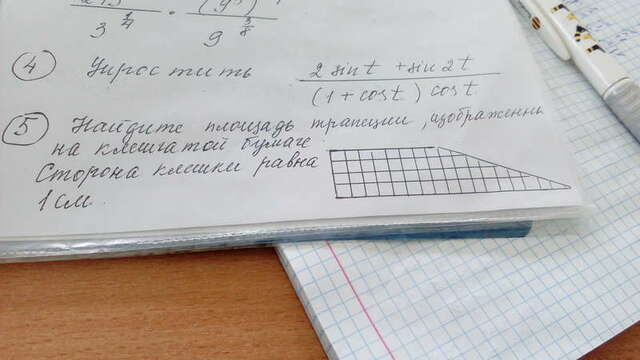 3^{\frac{1}{4}} · 9^{\frac{3}{8}}
④ Упростить \frac{2 sin t + sin 2t}{(1 + cos t) cos t}
⑤ Найдите площадь трапеции, изображенн
на клетчатой бумаге.
Сторона клетки равна
1 см.